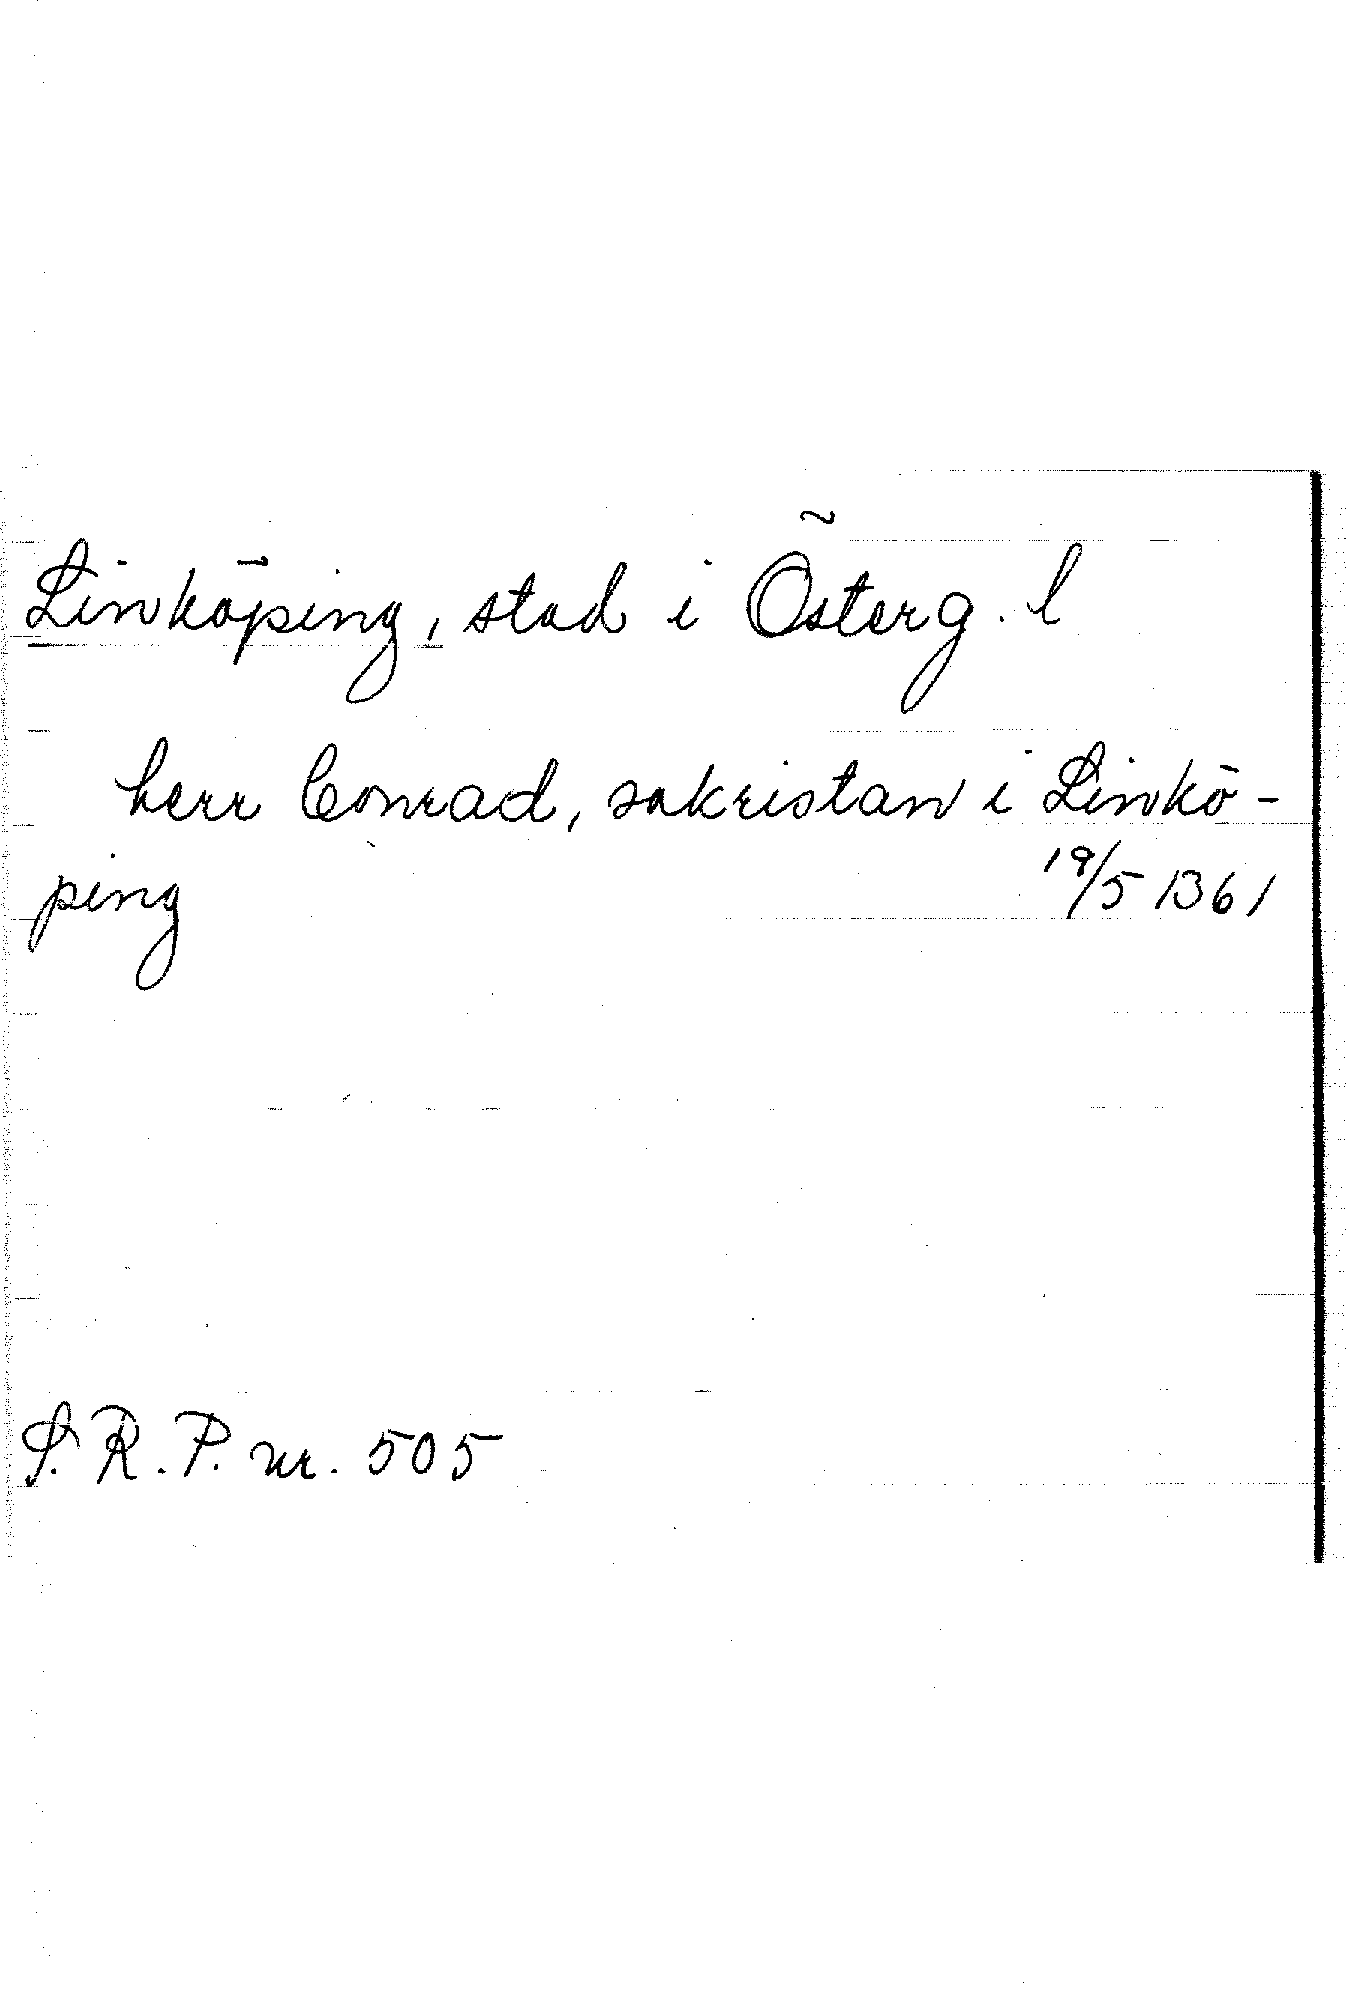 Linköping, stad i Österg. l
herr Conrad, sakristan i Linkö-
ping 19/5 1361
S.R.P. nr. 505